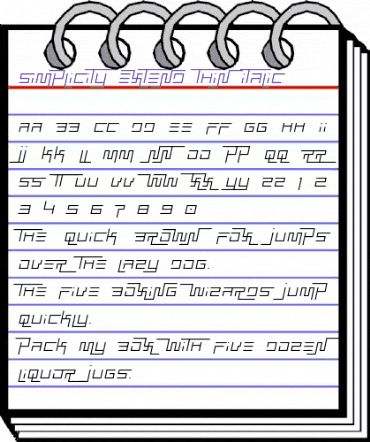 Simplicity Extend Thin Italic
AA BB CC DD EE FF GG HH ii
jj KK LL MM NN OO PP QQ RR
SS TT UU VV WW XX YY ZZ 1 2
3 4 5 6 7 8 9 0
THE QUICK BROWN FOX JUMPS
OVER THE LAZY DOG.
THE FIVE BOXING WIZARDS JUMP
QUICKLY.
PACK MY BOX WITH FIVE DOZEN
LIQUOR JUGS.